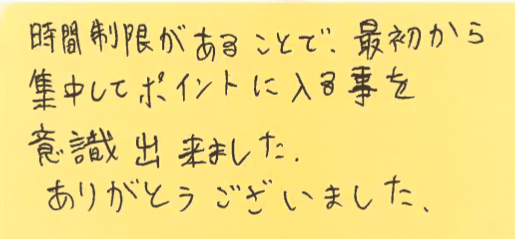 時間制限があることで、最初から
集中してポイントに入る事を
意識出来ました.
ありがとうございました、